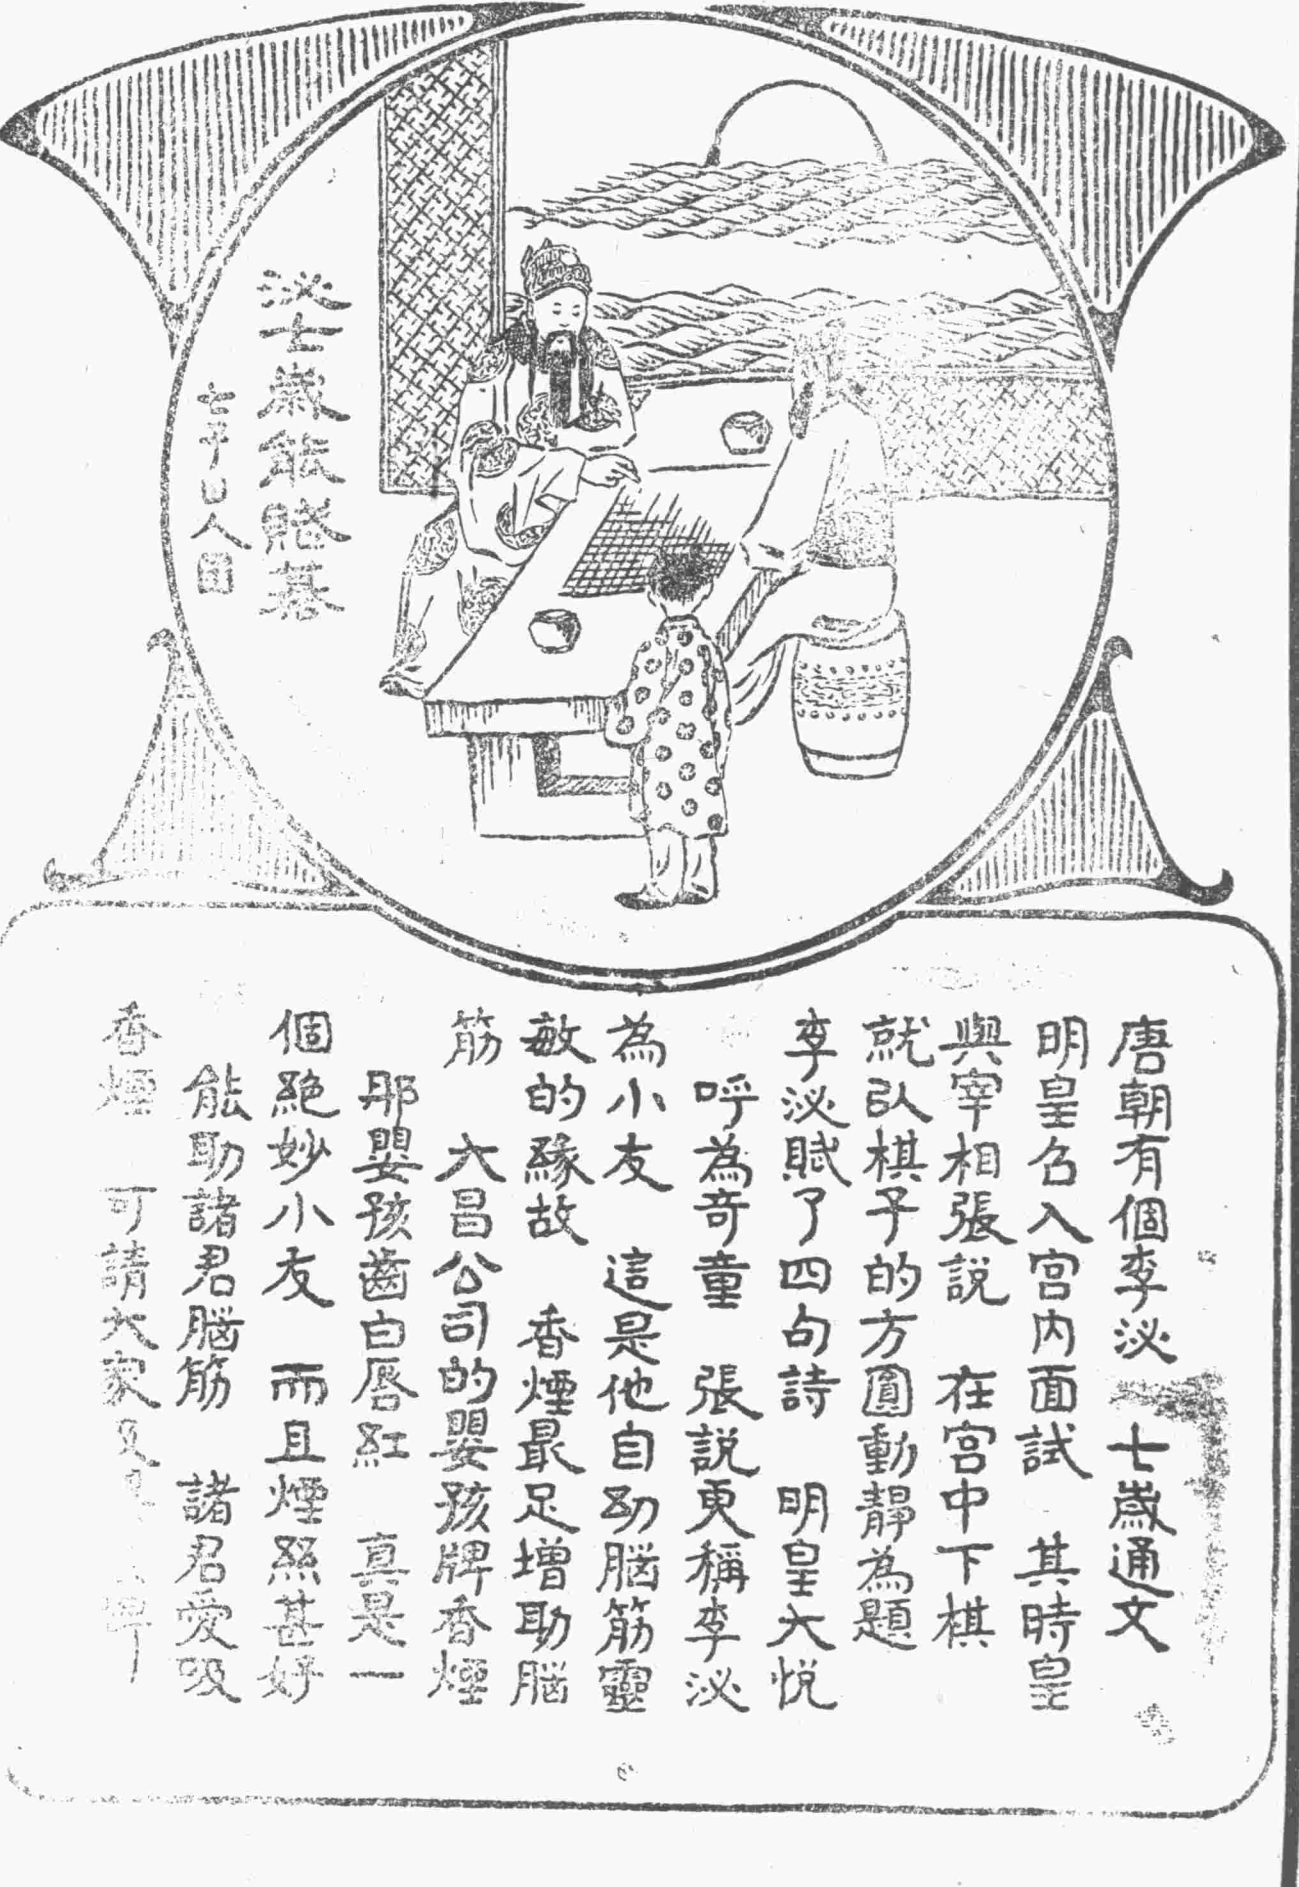 泌七歲能賦棋
唐朝有個李泌　七歲通文
明皇召入宮內面試　其時皇
與宰相張說　在宮中下棋
就以棋子的方圓動靜為題
李泌賦了四句詩　明皇大悅
呼為奇童　張說更稱李泌
為小友　這是他自幼腦筋靈
敏的緣故　香煙最足增助腦
筋　大昌公司的嬰孩牌香煙
那嬰孩齒白唇紅　真是一
個絕妙小友　而且煙絲甚好
能助諸君腦筋　諸君愛吸
香煙　可請大家